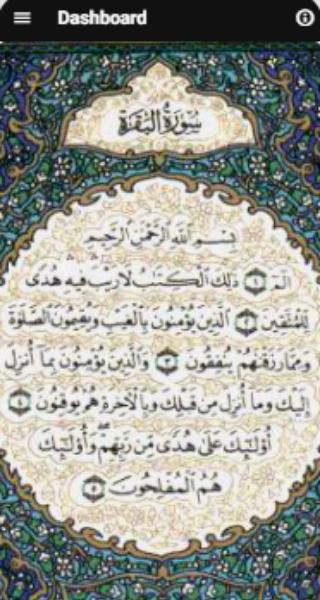 Dashboard
سُورَةُ البَقَرَةِ
بِسْمِ اللَّهِ الرَّحْمَٰنِ الرَّحِيمِ
الٓمٓ ﴿١﴾ ذَٰلِكَ الْكِتَابُ لَا رَيْبَ ۛ فِيهِ ۛ هُدًى
لِّلْمُتَّقِينَ ﴿٢﴾ الَّذِينَ يُؤْمِنُونَ بِالْغَيْبِ وَيُقِيمُونَ الصَّلَوٰةَ
وَمِمَّا رَزَقْنَٰهُمْ يُنفِقُونَ ﴿٣﴾ وَالَّذِينَ يُؤْمِنُونَ بِمَا أُنزِلَ
إِلَيْكَ وَمَا أُنزِلَ مِن قَبْلِكَ وَبِالْآخِرَةِ هُمْ يُوقِنُونَ ﴿٤﴾
أُوْلَٰٓئِكَ عَلَىٰ هُدًى مِّن رَّبِّهِمْ ۖ وَأُوْلَٰٓئِكَ
هُمُ الْمُفْلِحُونَ ﴿٥﴾